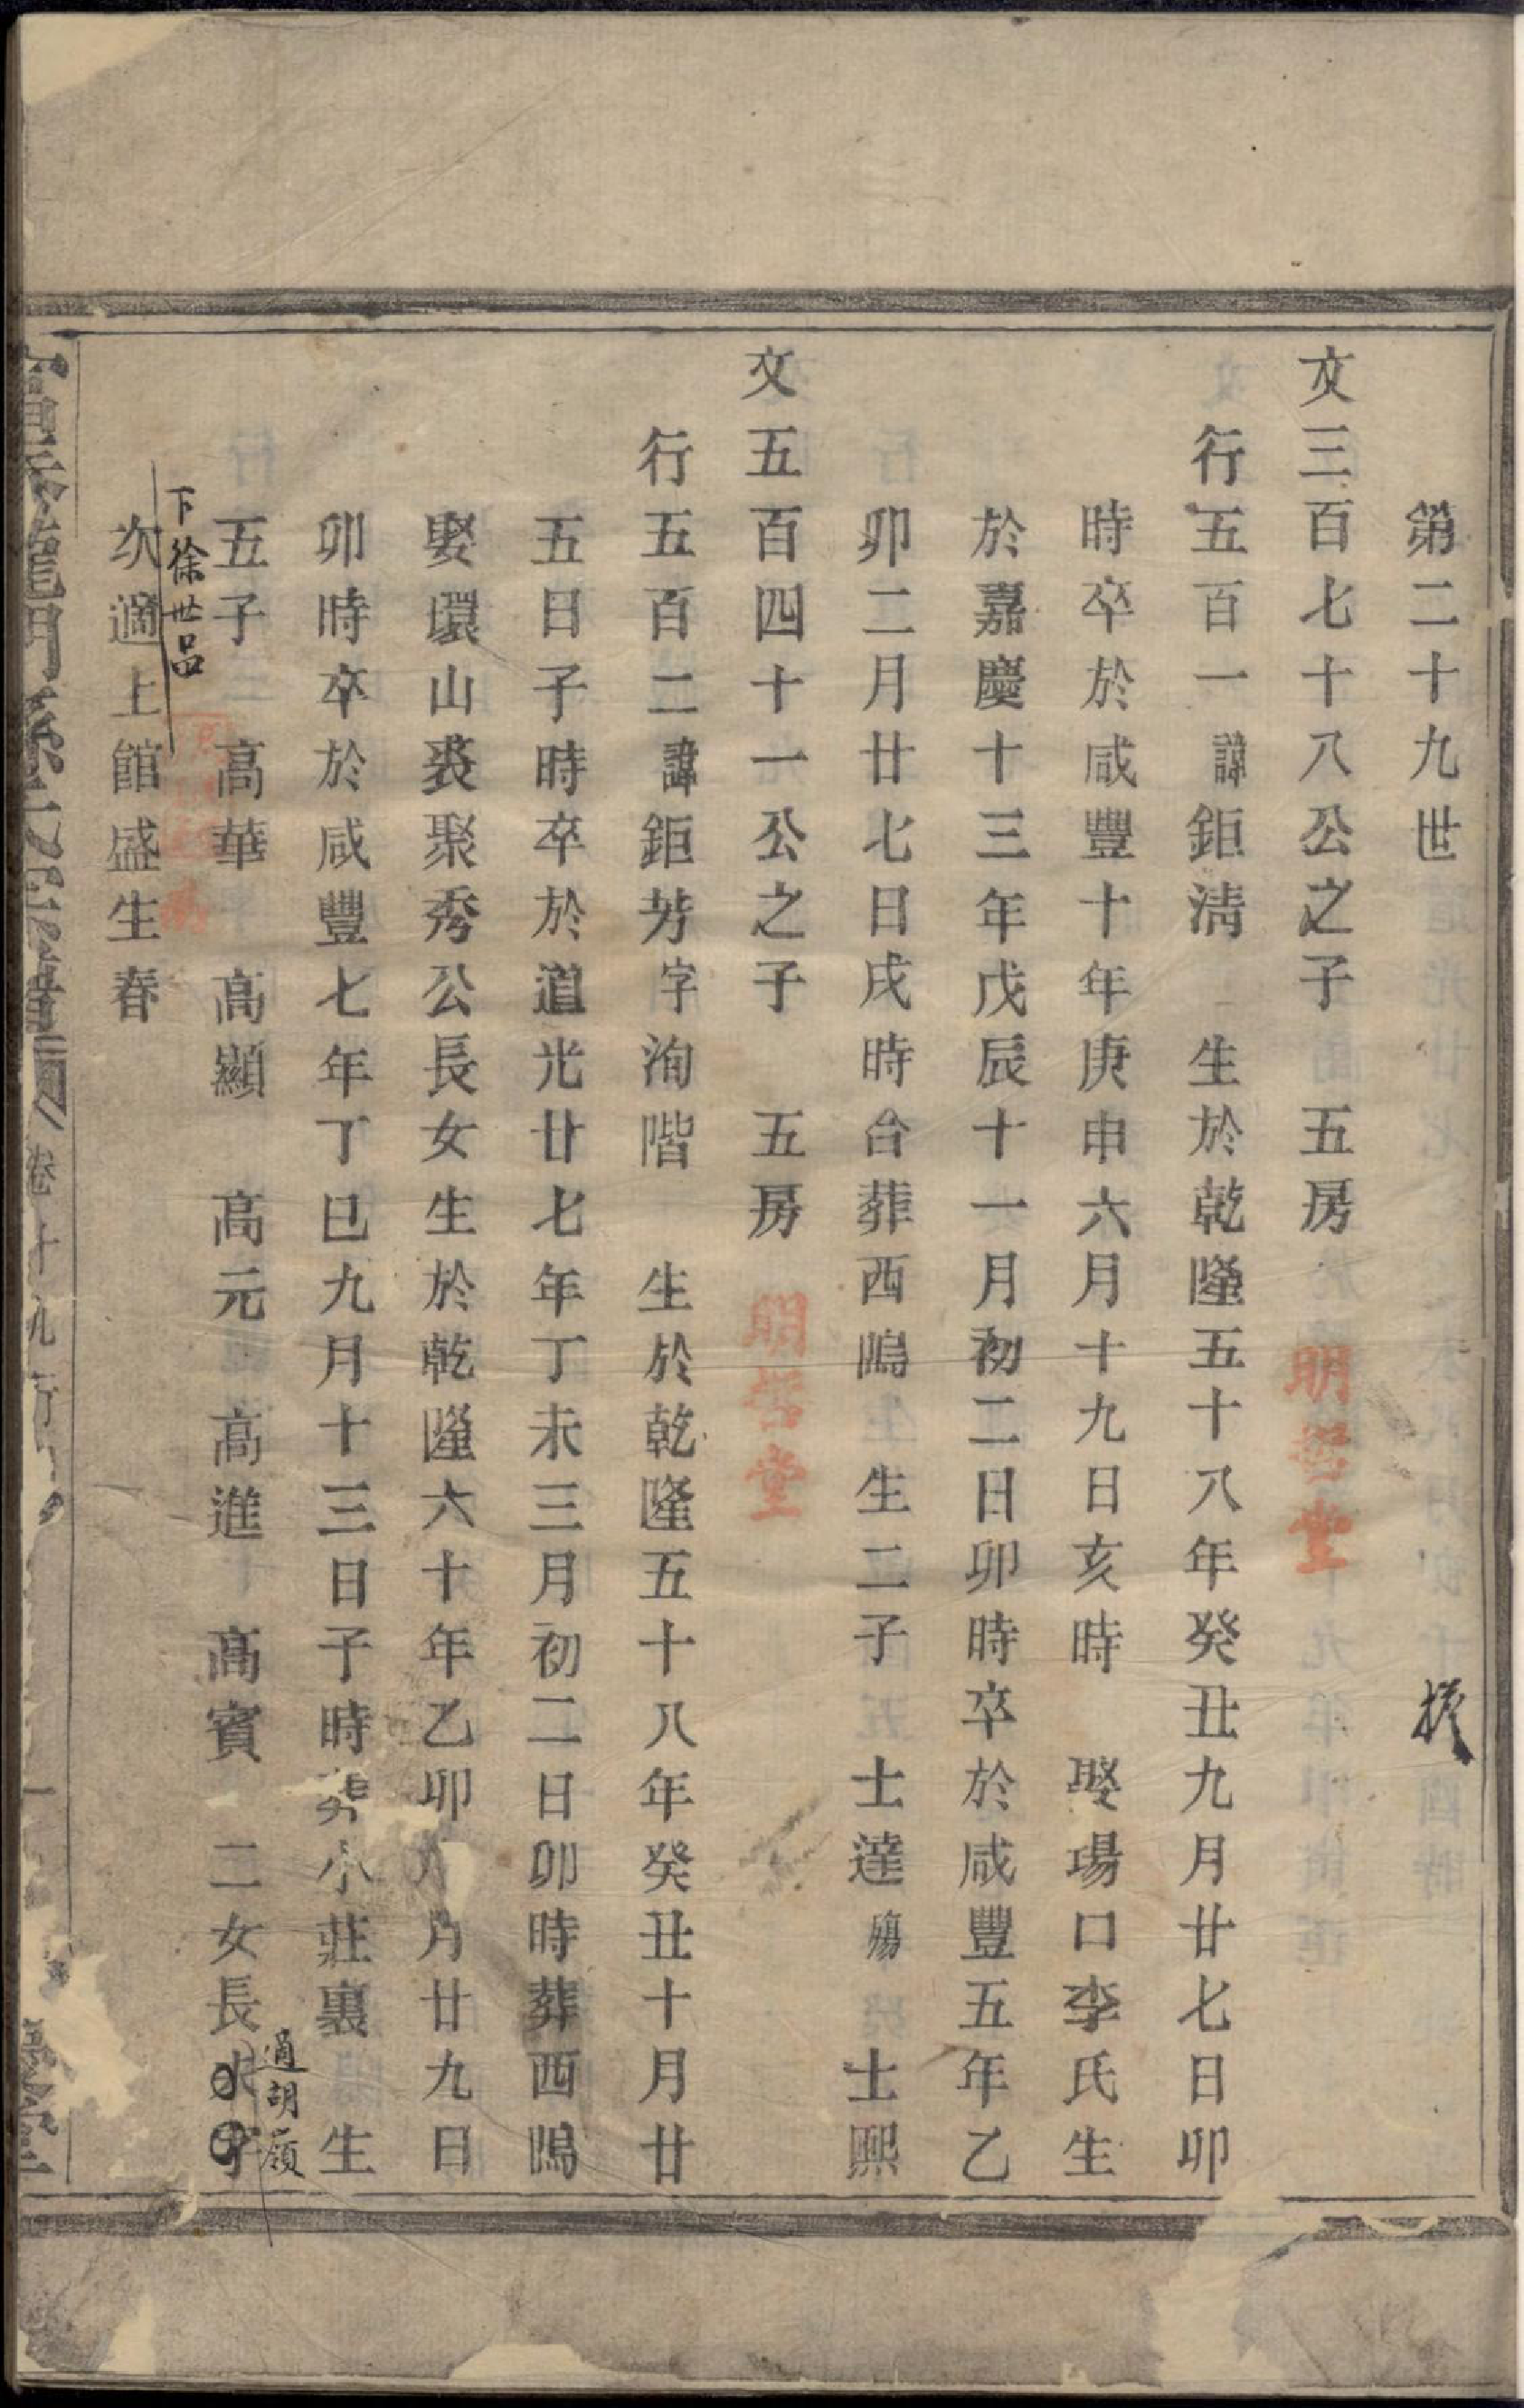 第二十九世
文三百七十八公之子 五房 明哲堂
行五百一諱鉅淸 生於乾隆五十八年癸丑九月廿七日卯
時卒於咸豐十年庚申六月十九日亥時 娶場口李氏生
於嘉慶十三年戊辰十一月初二日卯時卒於咸豐五年乙
卯二月廿七日戌時合葬西隖 生二子 士達殤 士熙
文五百四十一公之子 五房 明哲堂
行五百二諱鉅芳字洵階 生於乾隆五十八年癸丑十月廿
五日子時卒於道光廿七年丁未三月初二日卯時葬西隖
娶環山裘聚秀公長女生於乾隆六十年乙卯 月廿九日
卯時卒於咸豐七年丁巳九月十三日子時葬小莊裏 生
五子 高華 高顯 高元 高進 高賓 二女長
適胡嶺
下徐世品
次適上館盛生春
龍門孫氏宗譜 卷十九行